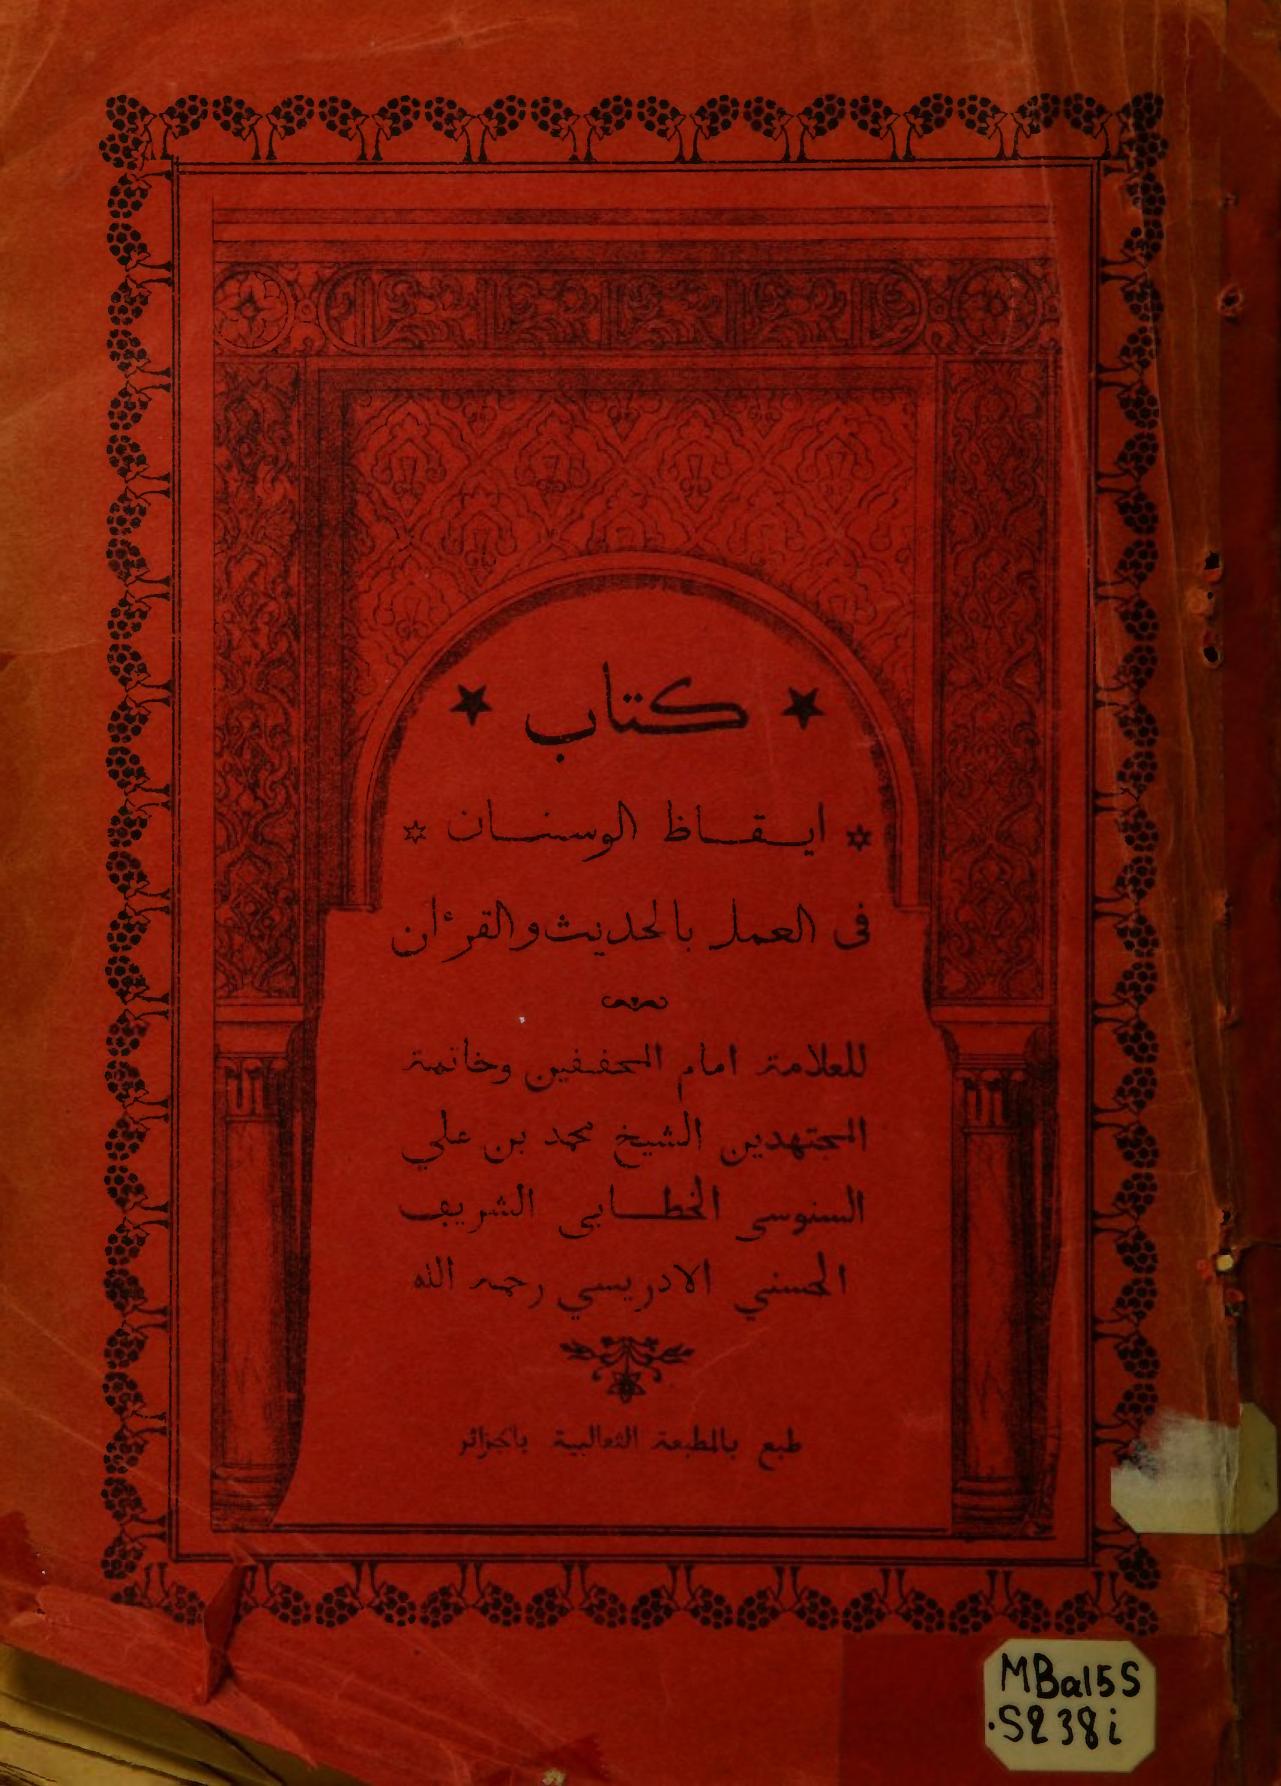 كتاب
ايقاظ الوسنان
في العمل بالحديث والقرءان
للعلامة امام المحققين وخاتمة
المجتهدين الشيخ محمد بن علي
السنوسي الخطابي الشريف
الحسني الادريسي رحمه الله
طبع بالمطبعة الثعالبية بالجزائر
MBa15S
.S238i